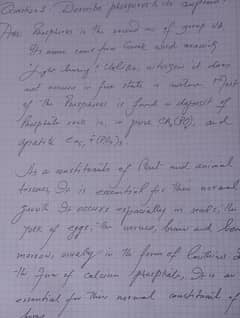 Question: Describe phosphorus & its
Ans: Phosphorus is the second of group VA.
Its name came from Greek word meaning
"light bearing". Unlike nitrogen it does
not occur in free state in nature. Most
of the Phosphorus is found in deposit of
Phosphate rock i.e. in pure and
apatite
As a constituents of Plant and animal
tissues, It is essential for their normal
growth. It occurs especially in seeds, the
yolk of eggs, the nerves, brain and bone
marrow, usually in the form of
the form of calcium phosphate, It is an
essential for their normal constituent of